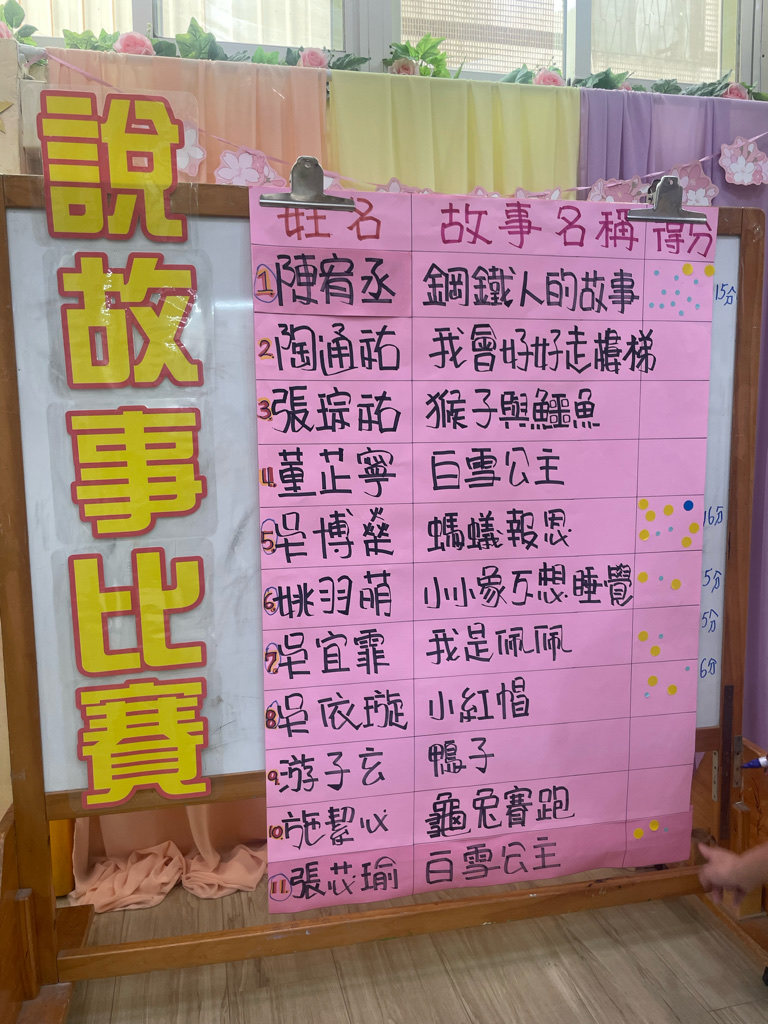 說故事比賽
姓名 故事名稱 得分
1 陳宥丞 鋼鐵人的故事 15分
2 陶通祐 我會好好走樓梯
3 張琮祐 猴子與鱷魚
4 董芷寧 白雪公主
5 吳博 螞蟻報恩 16分
6 姚羽萌 小小象不想睡覺 5分
7 吳宜霏 我是佩佩 5分
8 吳依璇 小紅帽 6分
9 游子玄 鴨子
10 施絜心 龜兔賽跑
11 張芯瑜 白雪公主